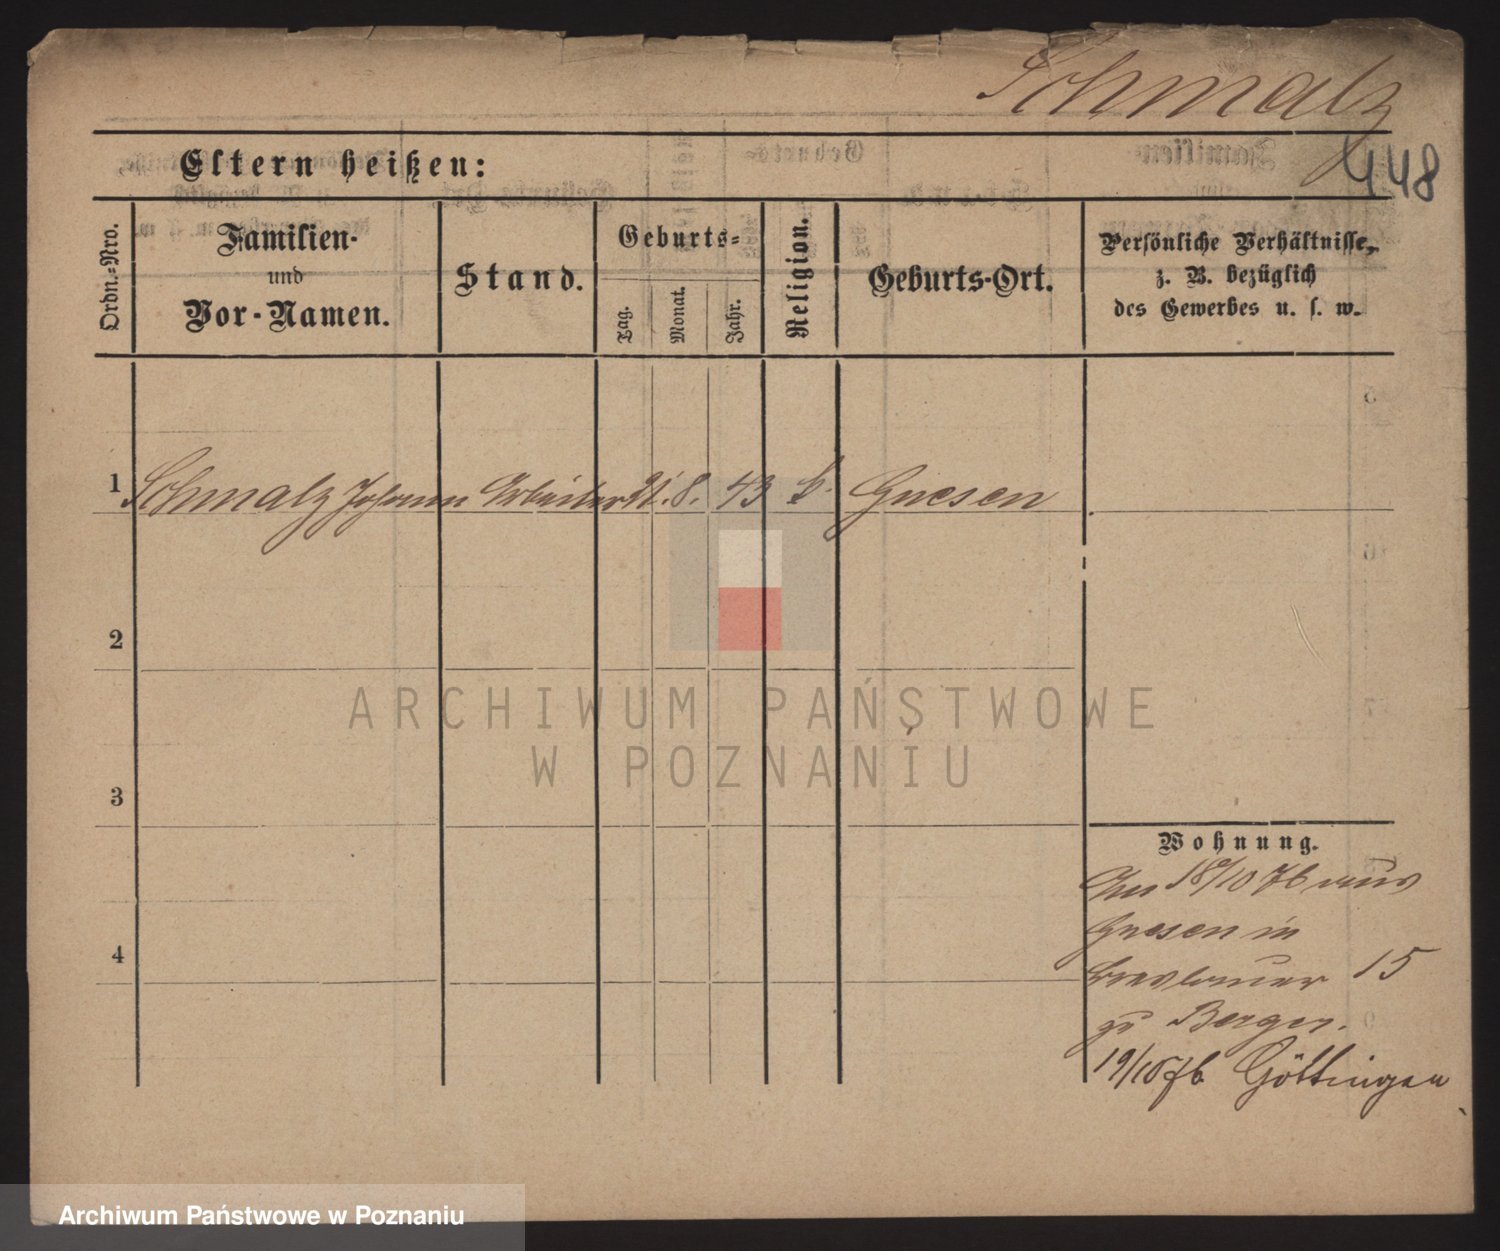 Schmalz
448
Eltern heißen:
Ordn.=Nro.
Familien-
und
Vor-Namen.
Stand.
Geburts=
Tag.
Monat.
Jahr.
Religion.
Geburts-Ort.
Persönliche Verhältnisse,
z. B. bezüglich
des Gewerbes u. s. w.
1 Schmalz Johann Arbeiter 21. 8. 43 k. Gnesen
2
3
4
Wohnung.
18/10 76 aus
Gnesen in
Breslauer 15
zu Berger.
19/10 76 Göttingen
ARCHIWUM PAŃSTWOWE
W POZNANIU
Archiwum Państwowe w Poznaniu